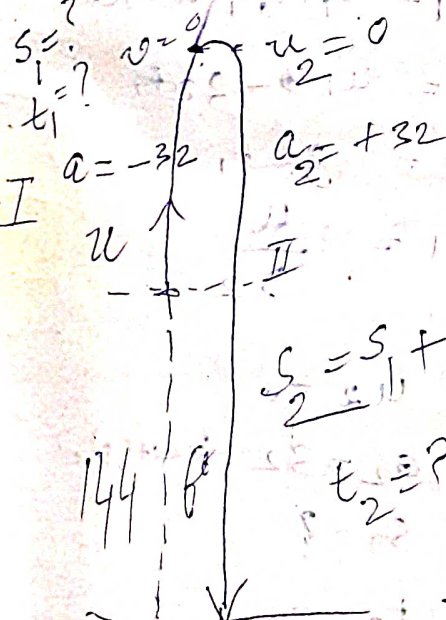 ?
S₁=? v=0 u₂=0
t₁=?
a=-32 a₂=+32
I
u
II
S₂=S₁+
144 f
t₂=?